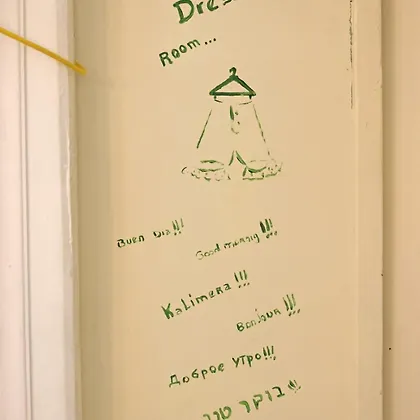 Room...
Buen Dia!!!
Good mornig!!!
Kalimera!!!
Bonjour!!!
Доброе утро!!!
בוקר טוב!!!